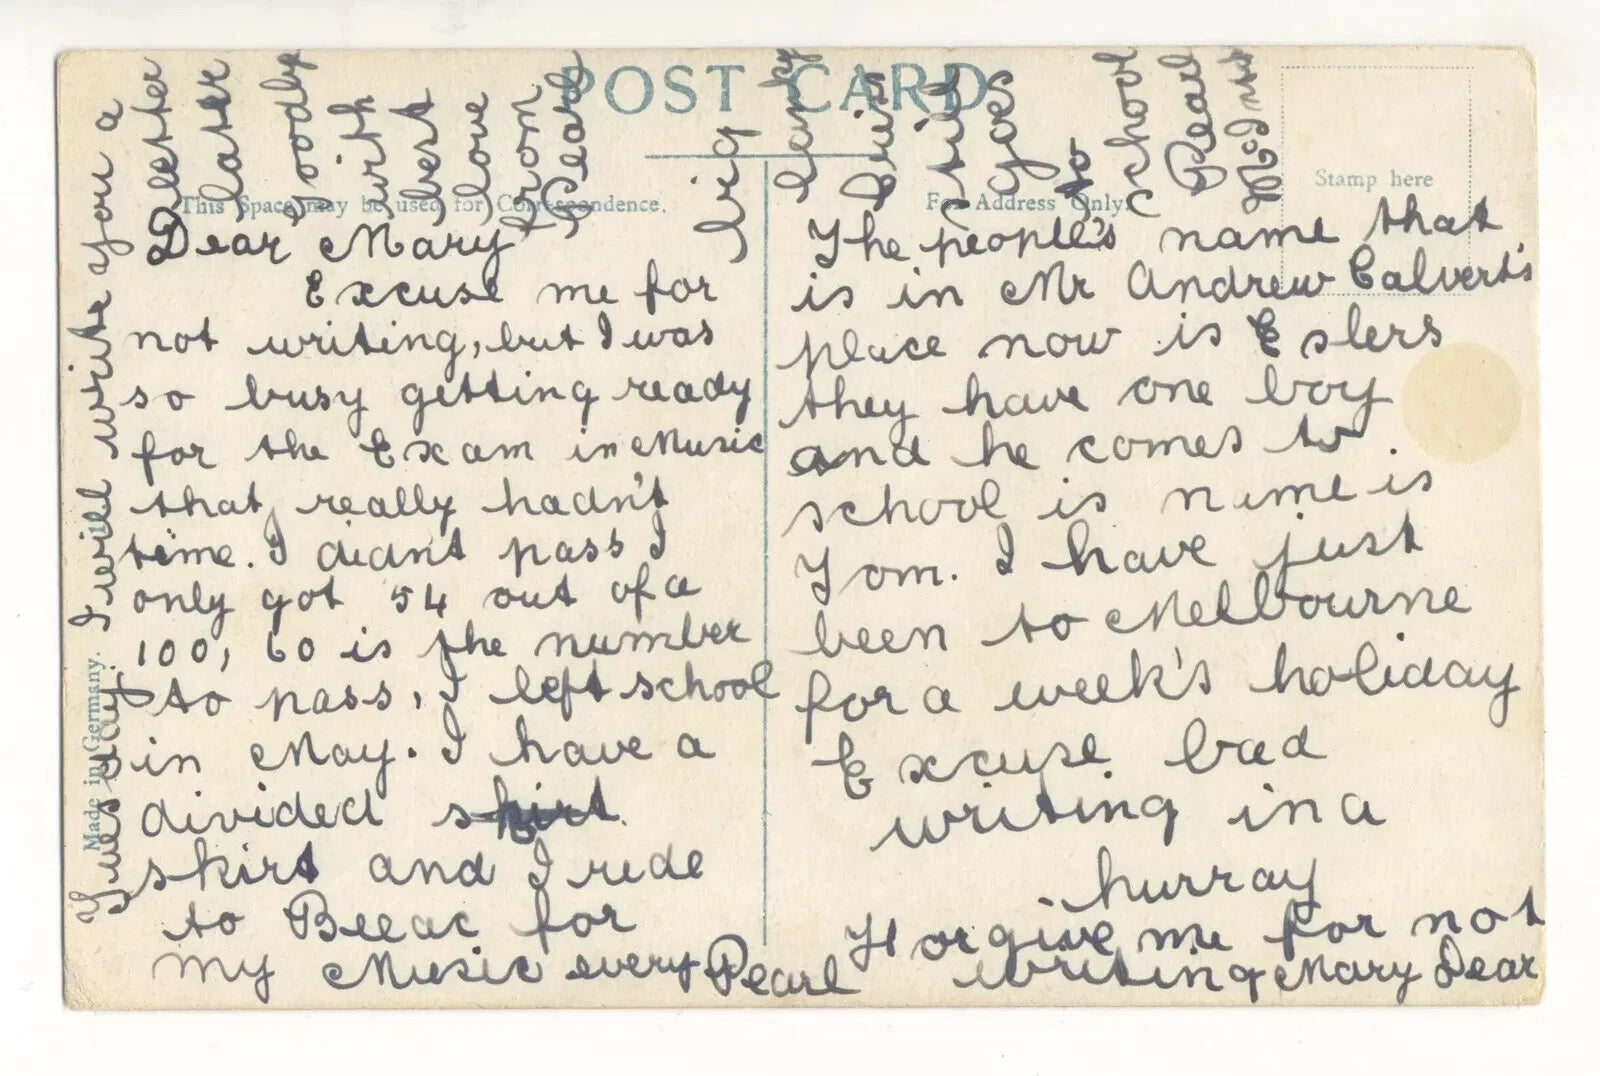 POST CARD
This Space may be used for Correspondence.
For Address Only.
Stamp here
Made in Germany.
Dear Mary
Excuse me for
not writing, but I was
so busy getting ready
for the Exam in Music
that, really hadn't
time. I didn't pass I
only got 54 out of a
100, 60 is the number
to pass, I left school
in May. I have a
divided skirt
skirt and I ride
to Beeac for
my Music every
Tuesday. I will write you a
letter
later
Goodby
with
best
love
from
Pearl
big
lanky
still
goes
to
school
Pearl
McInnes
The people's name that
is in Mr Andrew Calvert's
place now is Eslers
they have one boy
and he comes to
school is nime is
Tom. I have just
been to Melbourne
for a week's holiday
Excuse bad
writing in a
hurray
Forgive me for not
writing Mary Dear
Pearl